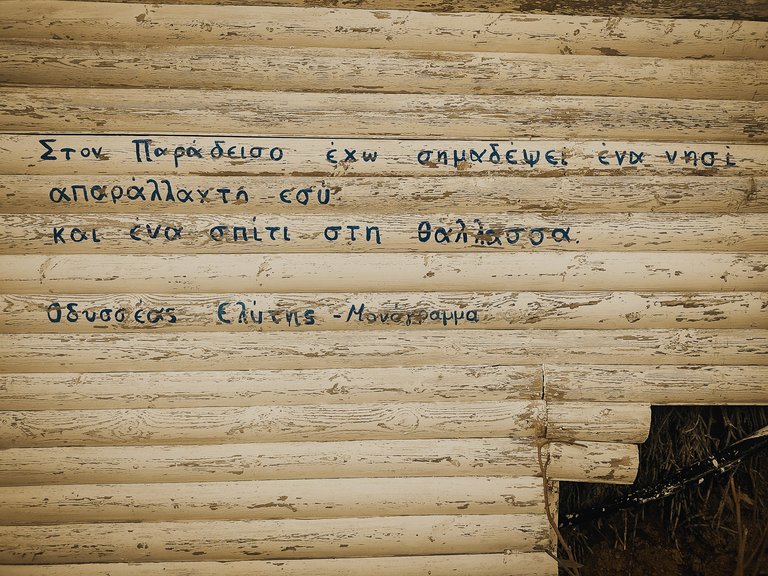 Στον Παράδεισο έχω σημαδέψει ένα νησί
απαράλλαχτο εσύ.
και ένα σπίτι στη θάλλασσα.
Οδυσσέας Ελύτης - Μονόγραμμα